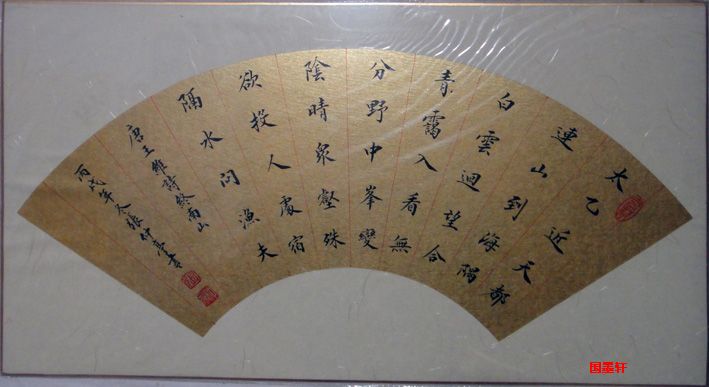 太乙近天都
連山到海隅
白雲迴望合
青靄入看無
分野中峯變
陰晴衆壑殊
欲投人處宿
隔水問漁夫
唐王維詩終南山
丙戌年冬張仲亭書
国墨轩